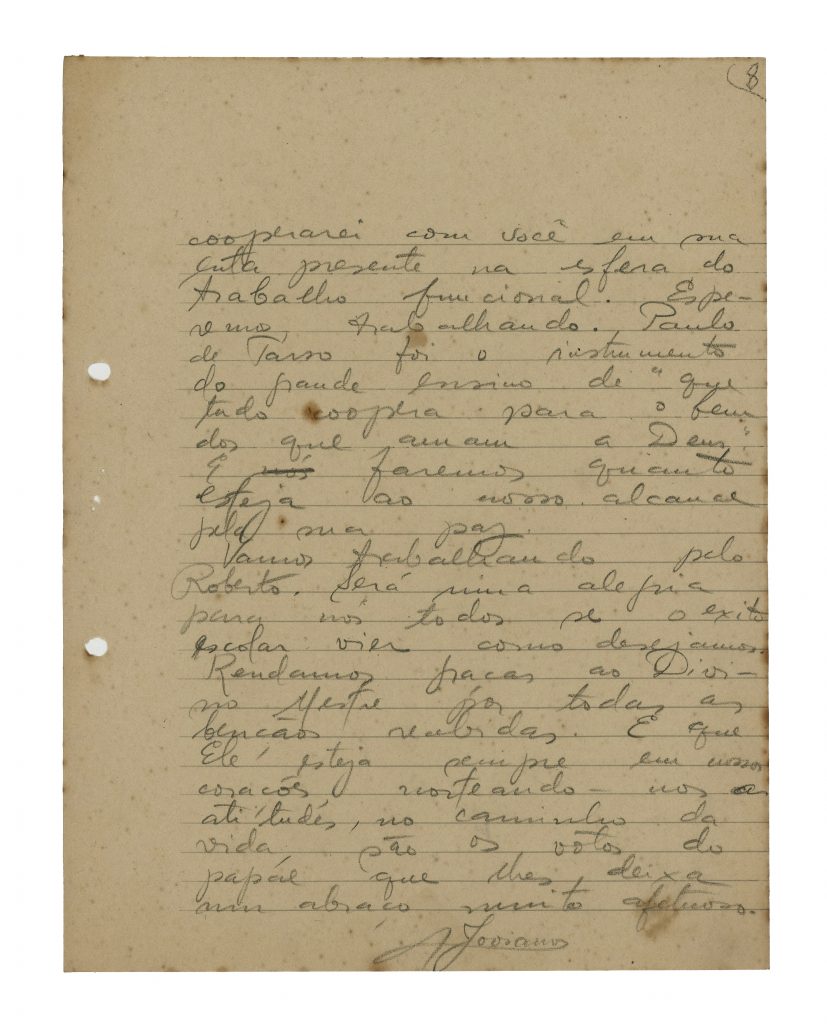 8
cooperarei com você em sua
luta presente na esfera do
trabalho funcional. Espe-
remos, trabalhando. Paulo
de Tarso foi o instrumento
do grande ensino de "que
tudo coopera para o bem
dos que amam a Deus".
E nós faremos quanto
esteja ao nosso alcance
pela sua paz.
Vamos trabalhando pelo
Roberto. Será uma alegria
para nós todos se o exito
escolar vier como desejamos.
Rendamos graças ao Divi-
no Mestre por todas as
bençãos recebidas. E que
Ele esteja sempre em nossos
corações norteando-nos as
atitudes, no caminho da
vida são os vótos do
papáe que lhes deixa
um abraço muito afetuoso.
A Joviano